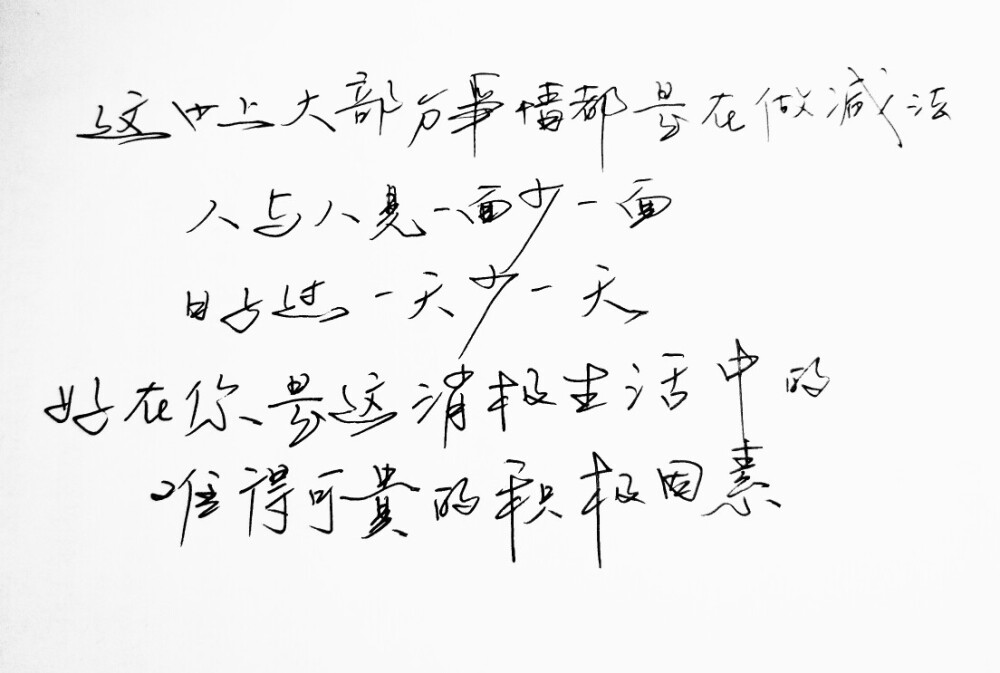 这世上大部分事情都是在做减法
人与人见一面少一面
日与过一天少一天
好在你是这消极生活中的
难得可贵的积极因素